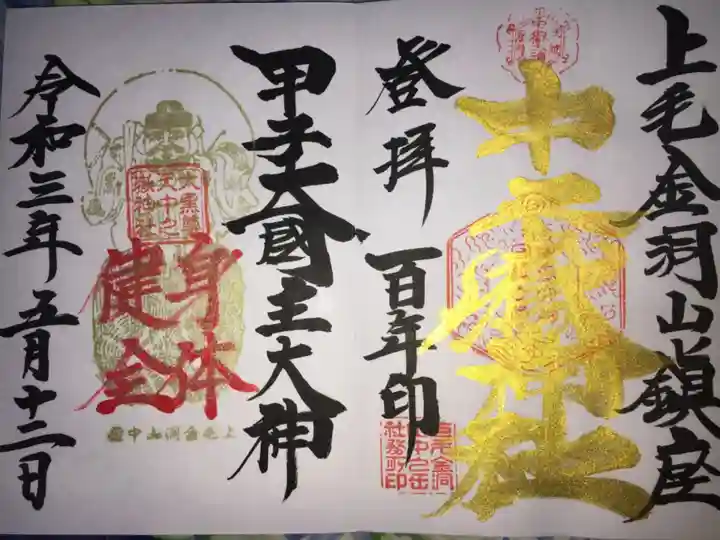 上毛金洞山鎮座
中之嶽神社
登拝 百年印
甲子大國主大神
身体
健全
大黒尊
天中之
嶽神社
上毛金洞山中
令和三年五月十二日
社務所印